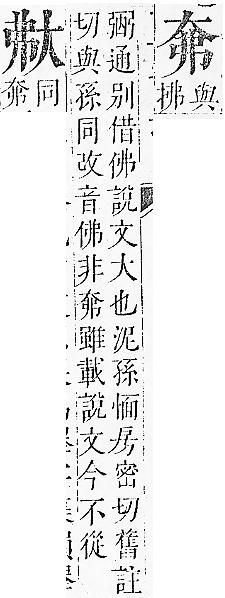 㚕
與
拂
弼通別借佛說文大也泥孫愐房密切舊註
切與孫同改音佛非㚕雖載說文今不從
同
㚕